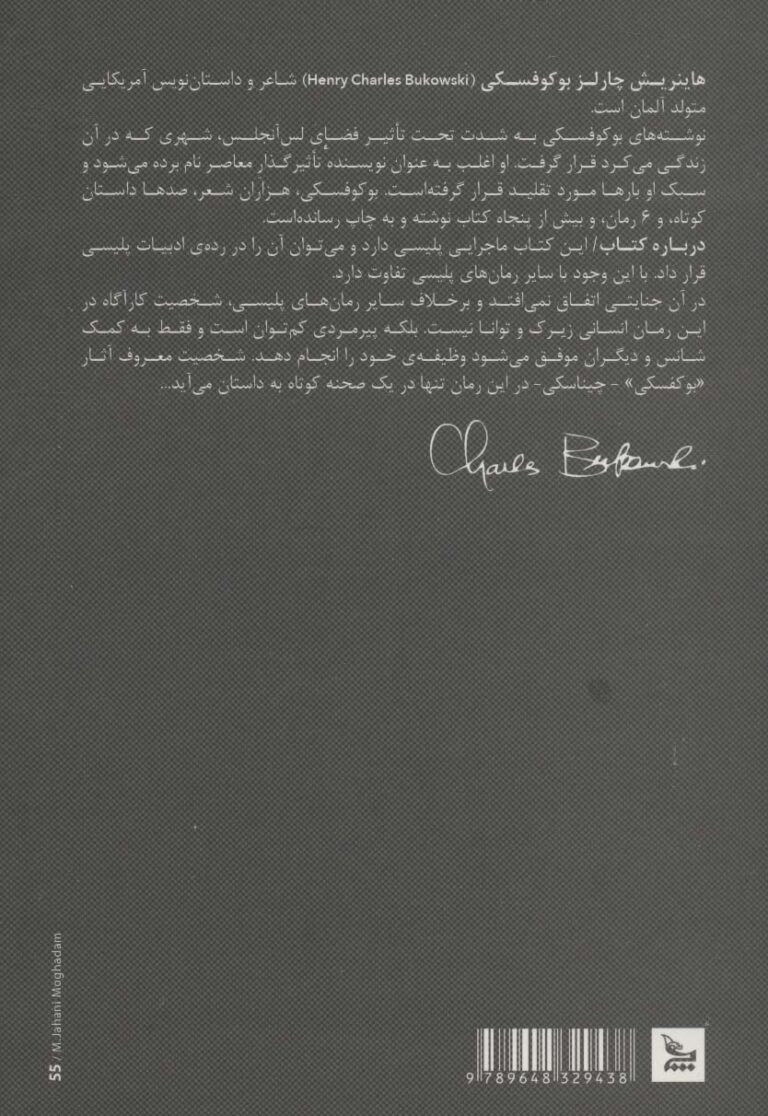 هاینریش چارلز بوکوفسکی (Henry Charles Bukowski) شاعر و داستان‌نویس آمریکایی
متولد آلمان است.
نوشته‌های بوکوفسکی به شدت تحت تأثیر فضای لس‌آنجلس، شهری که در آن
زندگی می‌کرد قرار گرفت. او اغلب به عنوان نویسنده تأثیرگذار معاصر نام برده می‌شود و
سبک او بارها مورد تقلید قرار گرفته‌است. بوکوفسکی، هزاران شعر، صدها داستان
کوتاه، و ۶ رمان، و بیش از پنجاه کتاب نوشته و به چاپ رسانده‌است.
درباره کتاب/ این کتاب ماجرایی پلیسی دارد و می‌توان آن را در رده‌ی ادبیات پلیسی
قرار داد. با این وجود با سایر رمان‌های پلیسی تفاوت دارد.
در آن جنایتی اتفاق نمی‌افتد و برخلاف سایر رمان‌های پلیسی، شخصیت کارآگاه در
این رمان انسانی زیرک و توانا نیست. بلکه پیرمردی کم‌توان است و فقط به کمک
شانس و دیگران موفق می‌شود وظیفه‌ی خود را انجام دهد. شخصیت معروف آثار
«بوکفسکی» - چیناسکی- در این رمان تنها در یک صحنه کوتاه به داستان می‌آید...
Charles Bukowski
55 / M.Jahani Moghadam
9 789648 329438